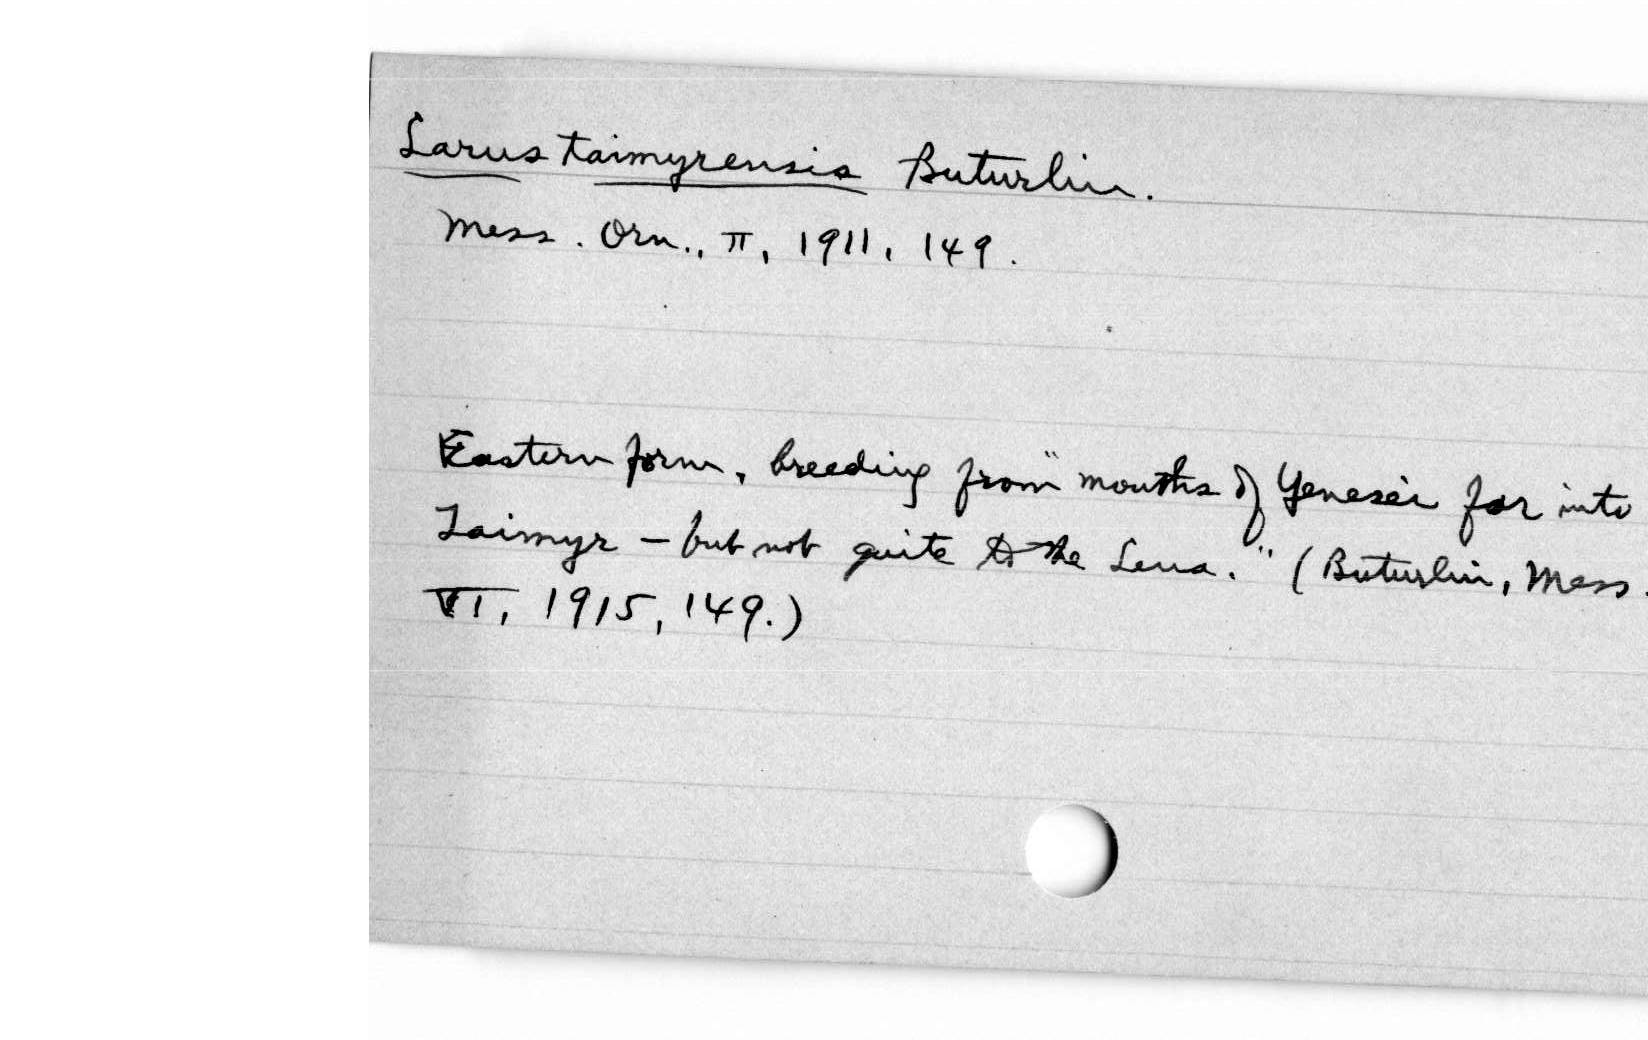 Larus taimyrensis Buturlin.
Mess. Orn., II, 1911, 149.
Eastern form, breeding from "mouths of Yenesei far into
Taimyr – but not quite to the Lena." (Buturlin, Mess.
VI, 1915, 149.)